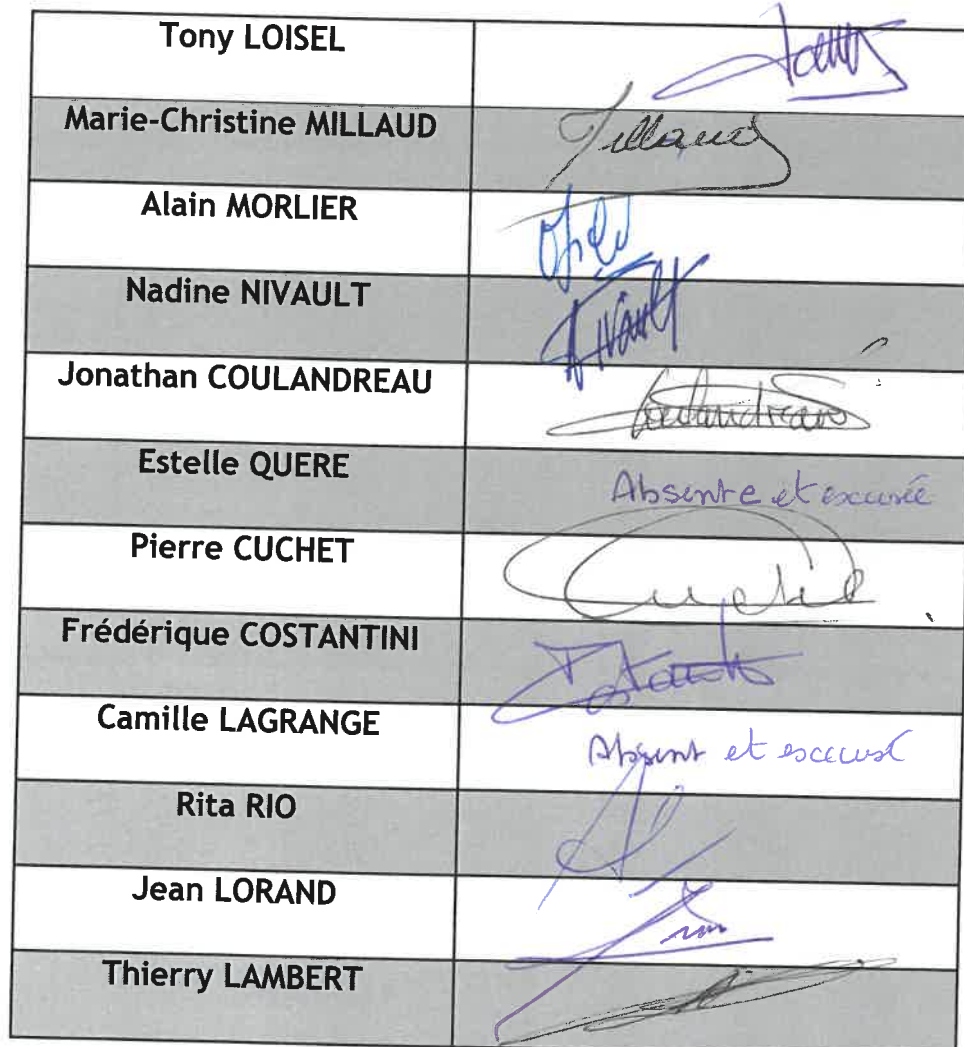 Tony LOISEL
Marie-Christine MILLAUD
Millaud
Alain MORLIER
Nadine NIVAULT
Nivault
Jonathan COULANDREAU
Coulandreau
Estelle QUERE
Absente et excusée
Pierre CUCHET
Cuchet
Frédérique COSTANTINI
Camille LAGRANGE
Absent et excusé
Rita RIO
Jean LORAND
Thierry LAMBERT